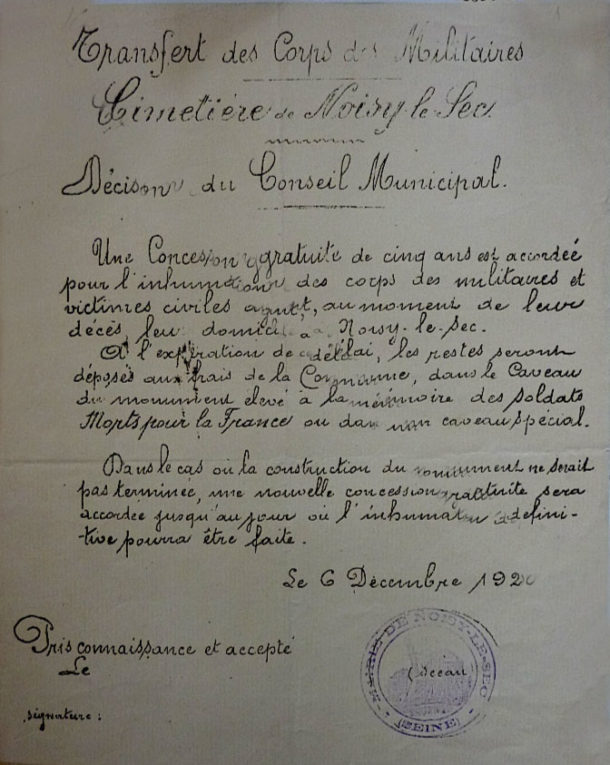 Transfert des Corps des Militaires
Cimetière de Noisy-le-Sec.
Décision du Conseil Municipal.
Une Concession gratuite de cinq ans est accordée
pour l'inhumation des corps des militaires et
victimes civiles ayant, au moment de leur
décès, leur domicile à Noisy-le-Sec.
A l'expiration de ce délai, les restes seront
déposés aux frais de la Commune, dans le Caveau
du monument élevé à la mémoire des Soldats
Morts pour la France ou dans un caveau spécial.
Dans le cas où la construction du monument ne serait
pas terminée, une nouvelle concession gratuite sera
accordée jusqu'au jour où l'inhumation défini-
-tive pourra être faite.
Le 6 Décembre 1920
Pris connaissance et accepté
Le
signature :
MAIRIE DE NOISY-LE-SEC
(Sceau)
(SEINE)